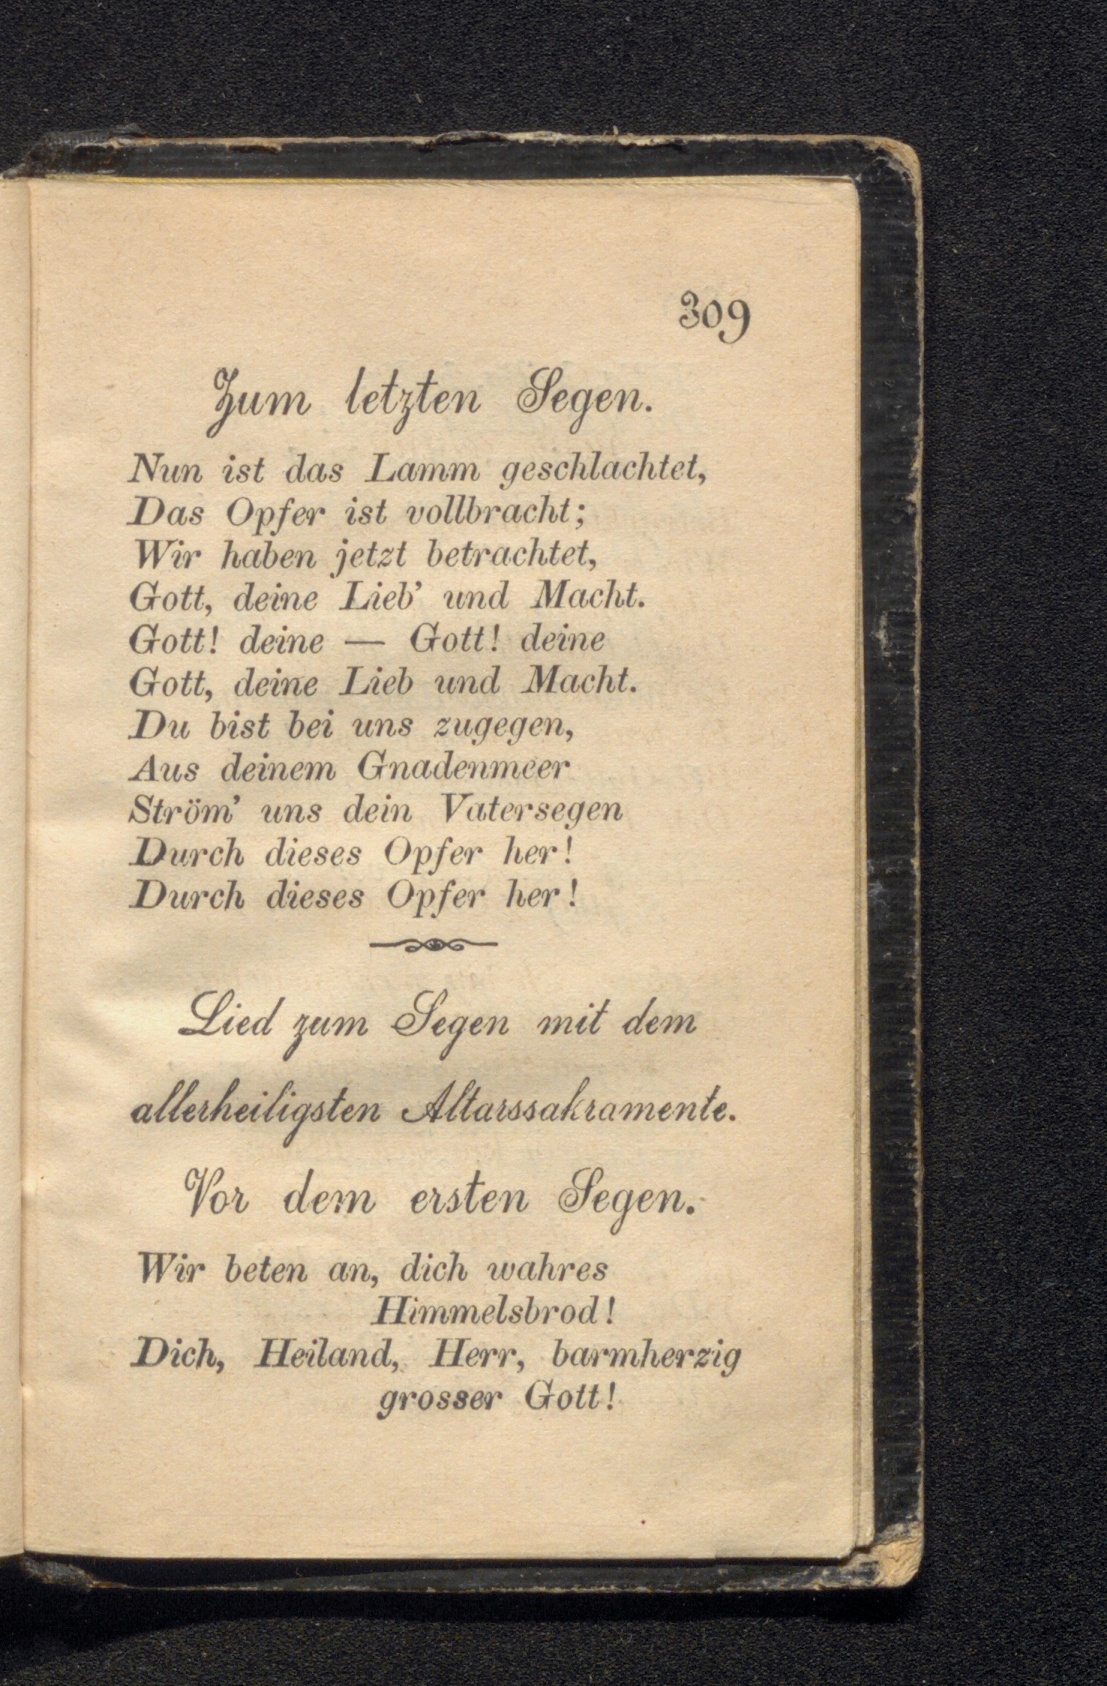 309
Zum letzten Segen.
Nun ist das Lamm geschlachtet,
Das Opfer ist vollbracht;
Wir haben jetzt betrachtet,
Gott, deine Lieb' und Macht.
Gott! deine — Gott! deine
Gott, deine Lieb und Macht.
Du bist bei uns zugegen,
Aus deinem Gnadenmeer
Ström' uns dein Vatersegen
Durch dieses Opfer her!
Durch dieses Opfer her!
Lied zum Segen mit dem
allerheiligsten Altarssakramente.
Vor dem ersten Segen.
Wir beten an, dich wahres
Himmelsbrod!
Dich, Heiland, Herr, barmherzig
grosser Gott!